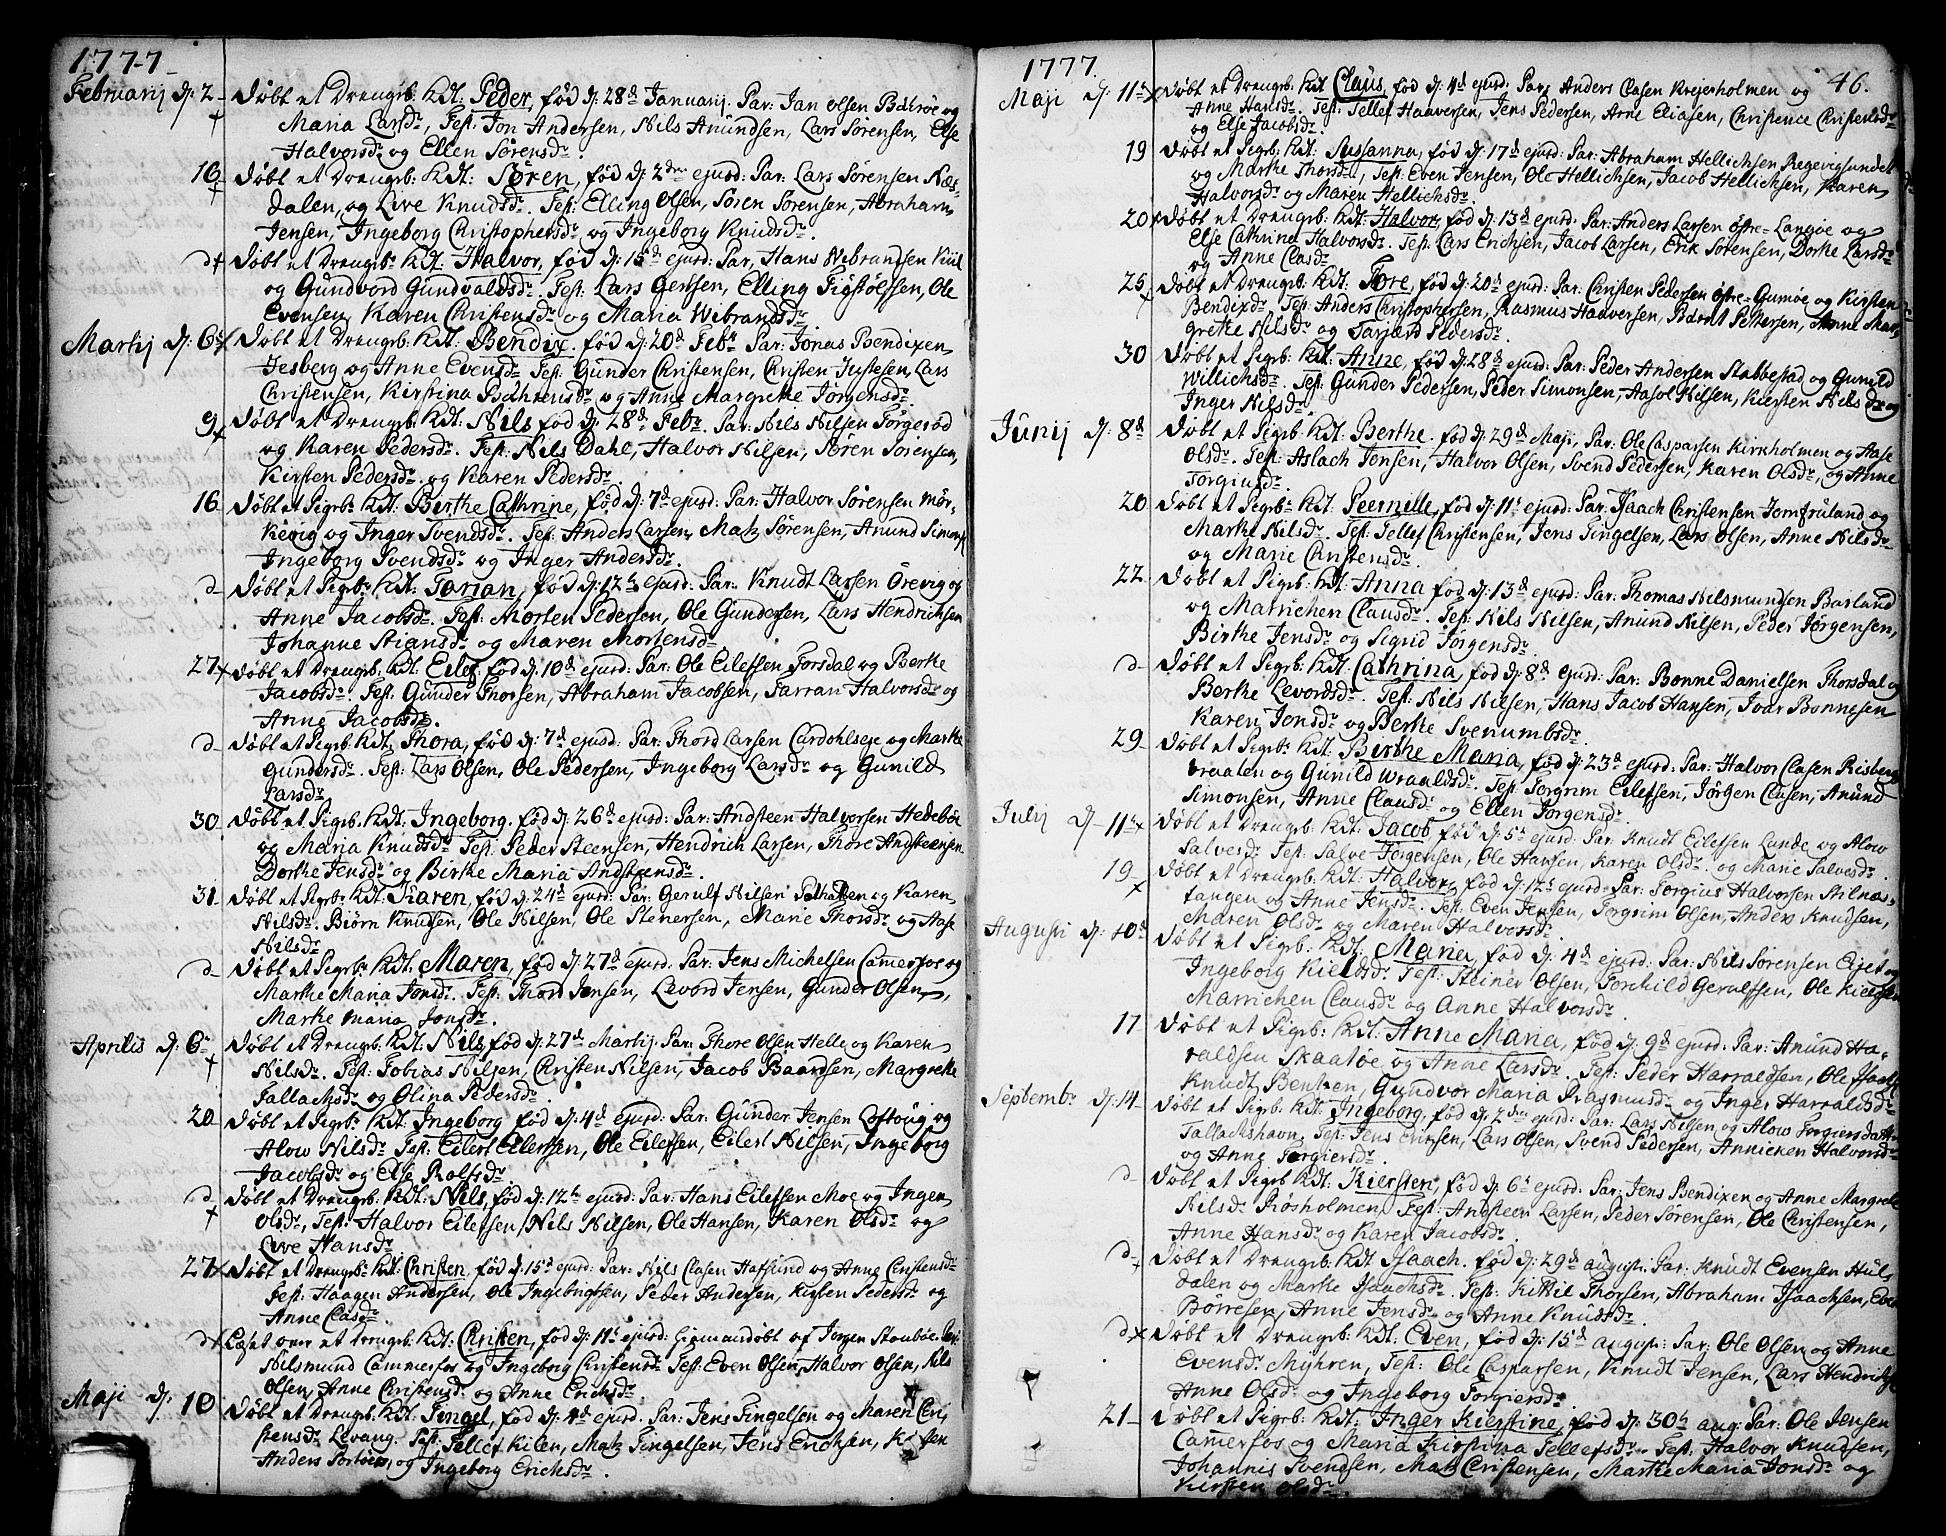 1777
Februarij d: 2 Døbt et Drengrb: Kdt. Peder, fød d: 28d Januarij. Par: Jan Olsen Bærøe og
Maria Larsdr, Test: Jon Andersen, Nils Amundsen, Lars Sørensen, Else
Halvorsdr og Ellen Sørensdr.
16 Døbt et Drengrb: Kdt: Søren, fød d: 2den ejusd: Par: Lars Sørensen Næs-
dalen, og Live Knudsdr. Test: Elling Olsen, Søren Sørensen, Abraham
Jensen, Ingeborg Christophersdr og Ingeborg Knudsdr.
d Døbt et Drengrb: Kdt: Halvor, fød d: 15d ejusd: Par, Hans Wibrandsen Kiil
og Gundvord Gundvaldsdr. Test: Lars Gensen, Elling Tiøstølssen, Ole
Evensen, Karen Christensdr og Maria Wibrandsdr.
Martij d: 6 Døbt et Drengrb: Kdt: Bendix. fød d: 20d Febr. Par: Jonas Bendixen
Jesberg og Anne Evensdr. Test: Gunder Christensen, Christen Justesen, Lars
Christensen, Kirstina Bæhrensdr og Anne Margrethe Jørgensdr.
9 Døbt et Drengrb: Kdt: Nils fød d: 28d Febr. Par: Nils Nilsen Torgerød
og Karen Pedersdr. Test: Nils Dahl, Halvor Nilsen, Søren Sørensen,
Kirsten Pedersdr. og Karen Pedersdr.
16 Døbt et Pigrb: Kdt: Birthe Cathrine, fød d: 7d ejusd: Par: Halvor Sørensen Mør-
kevig og Inger Svendsdr. Test: Anders Larsen, Matz Sørensen, Anund Simons.
Ingeborg Svendsdr og Inger Andersdr.
d Døbt et Pigrb: Kdt: Torian, fød d: 12t ejusd: Par: Knudt Larsen Ørevig og
Anne Jacobsdr. Test: Morten Pedersen, Ole Gundersen, Lars Hendrichsen
Johanne Stiansdr og Maren Mortensdr.
27 Døbt et Drengrb: Kdt. Eilef, fød d: 10d ejusd: Par: Ole Eilefsen Torsdal og Berthe
Jacobsdr. Test: Gunder Thorsen, Abraham Jacobsen, Tarran Halvorsdr og
Anne Jacobsdr.
d Døbt et Pigrb: Kdt. Thora, fød d: 7d ejusd: Par: Thord Larsen Cardohlseje og Marthe
Gundersdr. Test: Lars Olsen, Ole Pedersen, Ingeborg Larsdr og Gunild
Larsdr
30 Døbt et Pigrb. Kdt. Ingeborg. fød d: 26d ejusd: Par: Andsteen Halvorsen Hedebøe
og Maria Knudsdr. Test: Peder Steensen, Hendrich Larsen, Thore Andsteensen
Dorthe Jensdr og Birthe Maria Andsteensdr.
31 Døbt et Pigrb: Kdt: Karen, fød d: 24d ejusd: Par: Gerulf Nilsen og Karen
Nilsdr. Biørn Knudsen, Ole Nilsen, Ole Stenersen, Marie Thorsdr og Aase
Nilsdr
d Døbt et Pigrb: Kdt. Maren, fød d: 27d ejusd. Par: Jens Michelsen Camerfos og
Marthe Maria Jonsdr. Test: Thord Jensen, Levord Jensen, Gunder Olsen,
Marthe maria Jonsdr.
Aprilis d: 6 Døbt et Drengrb: Kdt. Nils, fød d: 27d Martij Par: Thore Olsen Helle og Karen
Nilsdr. Test: Tobias Nilsen, Christen Nilsen, Jacob Baardsen, Margrethe
Tallachsdr og Olina Pedersdr.
20 Døbt et Pigrb: Kdt. Ingeborg fød d: 4d ejusd: Par: Gunder Jensen Loftvig og
Alow Nilsdr Test: Eilert Eilertsen, Ole Eilefsen, Eilert Nilsen, Ingeborg
Jacobsdr og Else Rolfsdr
d Døbt et Drengrb: Kdt: Nils, fød d: 12t ejusd: Par: Hans Eilefsen Moe og Inger
Olsdr, Test: Halvor Eilefsen, Nils Nilsen, Ole Hansen, Karen Olsdr og
Live Hansdr
27 Døbt et Drengrb: Kdt: Christen, fød d: 15d ejusd: Par: Nils Clasen Hafsund og Anne Cristensdr
Test: Haagen Andersen, Ole Ingebrigtsen, Peder Andersen, Kirsten Pedersdr og
Anne Clasdr.
d Læset over et Drengrb: Kdt: Christen, fød d: 11t ejusd: Hiemmedøbt af Jørgen Stoubøe. Par:
Nilsmund Cammerfos og Ingeborg Christensdr Test: Even Olsen, Halvor Olsen, Nils
Olsen, Anne Christensdr og Anne Erichsdr.
Maji d: 10 Døbt et Drengrb: Kdt. Tingel, fød d: 4d ejusd: Par: Jens Tingelsen og Maren Cri-
stensdr Levang. Test: Tellef Kilen, Matz Tingelsen, Jens Erichsen,
Anders og Ingeborg Erichsdr.
1777. 46.
Maji d: 11 Døbt et Drengrb: Kdt Claus, fød d: 4d ejusd: Par: Anders Clasen Krejerholmen og
Anne Hansdr. Test: Tellef Haaversen, Jens Pedersen, Arne Eliasen, Christence Christensdr
og Else Jacobsdr.
19 Døbt et Pigrb: Kdt: Sussanna, fød d: 17d ejusd: Par: Abraham Hellichsen Regevigsundet
og Marthe Thorsdr, Test: Even Jensen, Ole Hellichsen, Jacob Hellichsen, Karen
Halvorsdr og Maren Hellichsdr.
20 Døbt et Drengrb: Kdt: Halvor, fød d: 13d ejusd: Par: Anders Larsen Østre-Langøe og
Else Cathrina Halvorsdr. Test: Lars Erichsen, Jacob Larsen, Erik Sørensen, Dorthe Larsdr
og Anne Clasdr
25 Døbt et Drengrb: Kdt: Tore, fød d: 20d ejusd: Par: Christen Pedersen Østre-Gumøe og Kirsten
Bendixdr, Test: Anders Christophersen, Rasmus Haaversen, Bærnt Pettersen, Anne Mar-
grethe Nilsdr og Targierd Pedersdr.
30 Døbt et Pigrb: Kdt: Anne, fød d: 28d ejusd: Par: Peder Andersen Stabbestad og Gunild
Willichsdr. Test: Gunder Pedersen, Peder Simonsen, Aasol Nilsen, Kiersten Nilsdr og
Inger Nilsdr.
Junij d: 8d Døbt et Pigrb. Kdt: Berthe. fød d: 29d Maji, Par: Ole Caspersen Kirkholmen og Aase
Olsdr. Test: Aslach Jensen, Halvor Olsen, Svend Pedersen, Karen Olsdr, og Anne
Torgiusdr.
20 Døbt et Pigrb: Kdt: Peernille, fød d: 11t ejusd: Par: Isaach Christensen Jomfruland og
Marthe Nilsdr. Test: Tellef Christensen, Jens Tingelsen, Lars Olsen, Anne Nilsdr
og Marie Christensdr.
22 Døbt et Pigrb: Kdt: Anna fød d: 13d ejusd: Par: Thomas Nilsmundsen Barland
og Marrichen Clausdr. Test: Nils Nilsen, Anund Nilsen, Peder Jørgensen,
Birthe Jensdr og Sigrid Jørgensdr.
d Døbt et Pigrb: Kdt: Cathrina, fød d: 8d ejusd: Par: Bonne Danielsen Thorsdal og
Berthe Levordsdr. Test: Nils Nilsen, Hans Jacob Hansen, Ivar Bonnesen
Karen Jonsdr og Berthe Svenumbsdr.
29 Døbt et Pigrb: Kdt: Birthe Maria, fød d: 23d ejusd: Par: Halvor Clasen Risberg
braaten og Gunild Wraaldsdr. Test Torgrim Eilefsen, Jørgen Clasen, Anund
Simonsen, Anne Clausdr og Ellen Jørgensdr.
Julij d 11 Døbt et Drengrb: Kdt: Jacob fød d: 5t ejusd: Par: Knudt Eilefsen Lunde og Alow
Salvesdr Test: Salve Jørgensen, Ole Hansen, Karen Olsdr. og Marie Salvesdr.
19 Døbt et Drengrb: Kdt: Halvor, fød d: 12t ejusd: Par: Torgius Halvorsen Stilnæs-
tangen og Anne Jensdr. Test: Even Jensen, Torgrim Olsen, Anders Knudsen,
Maren Olsdr og Maren Halvorsdr.
Augusti d: 10d Døbt et Pigrb: Kdt: Maria, fød d: 4d ejusd: Par: Nils Sørensen Eijet og
Ingeborg Kieldsdr. Test: Steiner Olsen, Torchild Gerulfsen, Ole Kieldsen
Marrichen Clausdr og Anne Halvorsdr.
17 Døbt et Pigrb: Kdt. Anne Maria, fød d: 9d ejusd: Par: Anund Ha-
raldsen Skaatøe og Anne Larsdr. Test: Peder Harraldsen, Ole Isachs.
Knudt Bentzen, Gundvor Maria Rasmusdr og Inger Harraldsdr.
Septembr. d: 14 Døbt et Pigrb: Kdt: Ingeborg, fød d: 2den ejusd: Par: Lars Nilsen og Alow Torgiersdatter
Tallackshavn, Test: Jens Erichsen, Lars Olsen, Svend Pedersen, Annicken Halvorsdr
og Anne Torgiersdr.
d Døbt et Pigrb Kdt: Kiersten, fød d: 6t ejusd: Par: Jens Bendixen og Anne Margrethe
Nilsdr Røsholmen, Test: Andsteen Larsen, Peder Sørensen, Ole Christensen,
Anne Hansdr og Karen Jacobsdr.
d Døbt et Drengrb: Kdt Isaach. fød d: 29d augusti. Par: Knudt Evensen Huls
dalen og Marthe Isaachsdr. Test: Kittil Thorsen, Abraham Isaachsen, Even
Børresen, Anne Jensdr og Anne Knudsdr.
d Døbt et Drengrb: Kdt: Even, fød d: 15d august: Par: Ole Olsen og Anne
Evensdr Myhren, Test: Ole Casparsen, Knudt Jensen, Lars Hendrichs.
Anne Olsdr og Ingeborg Torgiersdr.
21 Døbt et Pigrb: Kdt: Inger Kierstine, fød d: 30t aug: Par: Ole Jensen
Camerfos og Maria Kirstina Tellefsdr. Test: Halvor Knudsen,
Johannis Svendsen, Matz Cristensen, Marthe Maria Jonsdr og
Kirsten Olsdr.